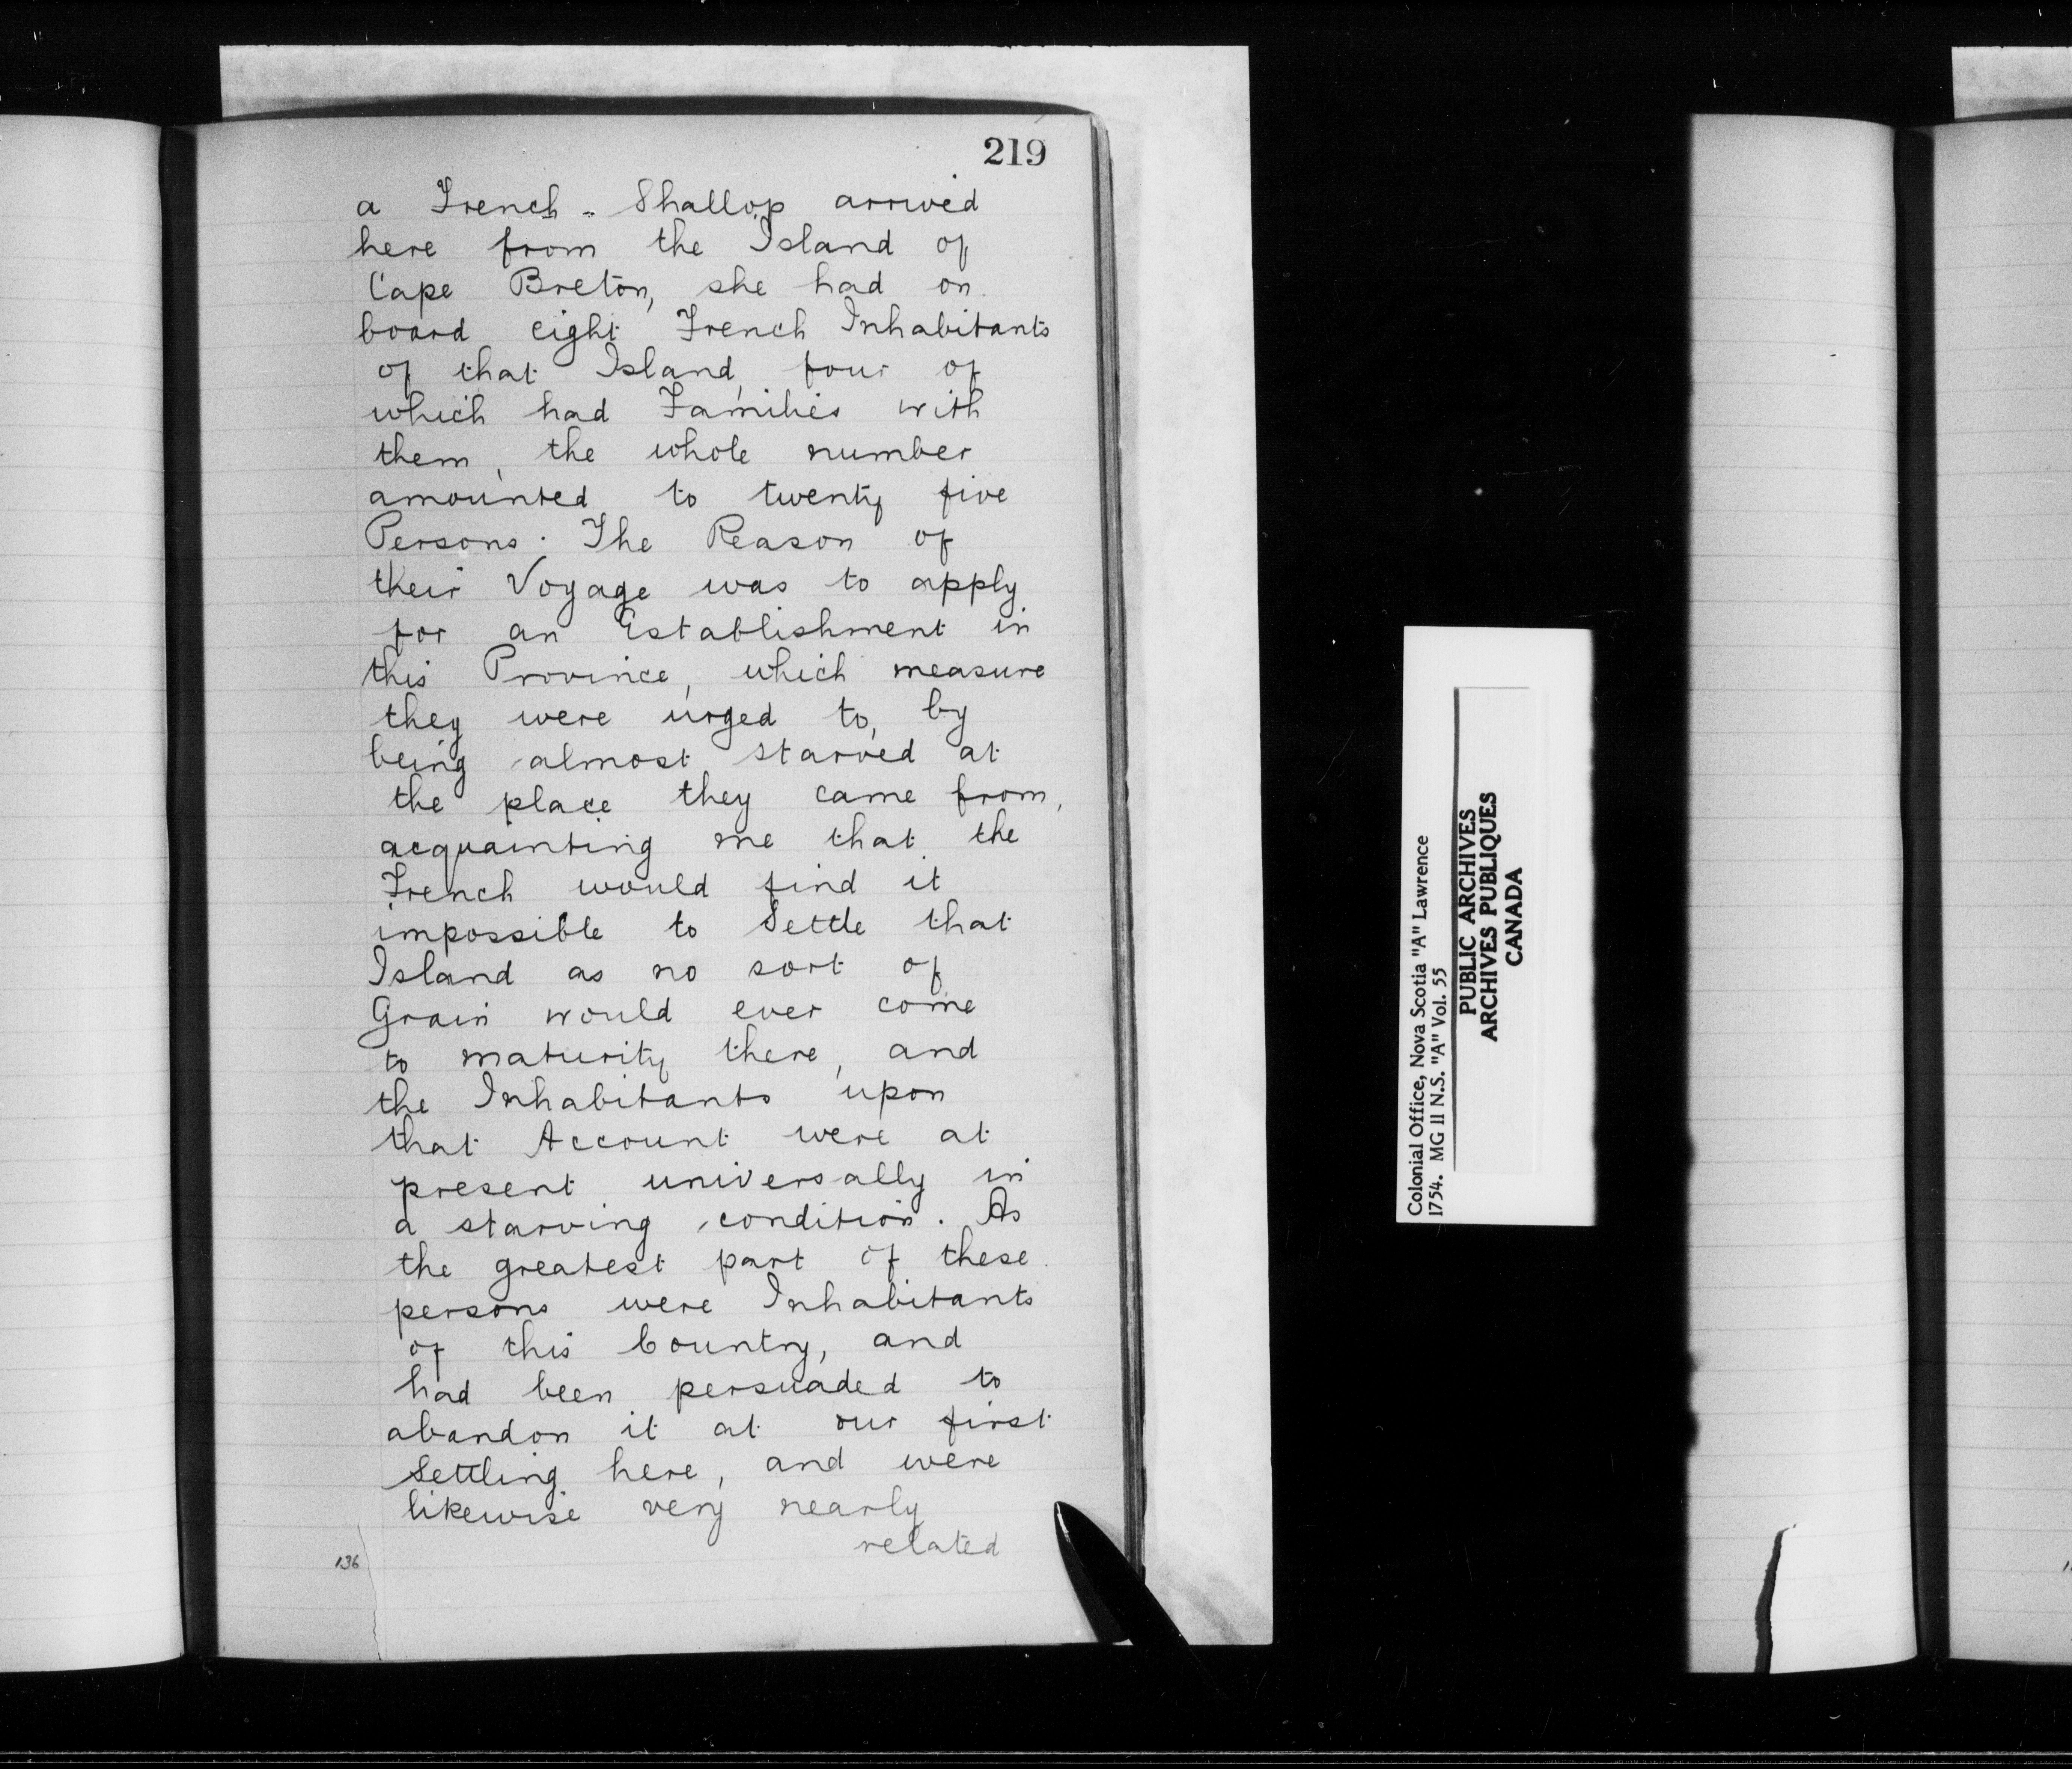 219
a French - Shallop arrived
here from the Island of
Cape Breton, she had on
board eight French Inhabitants
of that Island, four of
which had Families with
them, the whole number
amounted to twenty five
Persons. The Reason of
their Voyage was to apply
for an Establishment in
this Province, which measure
they were urged to, by
being almost starved at
the place they came from,
acquainting me that the
French would find it
impossible to Settle that
Island as no sort of
Grain would ever come
to maturity there, and
the Inhabitants upon
that Account were at
present universally in
a starving condition. As
the greatest part of these
persons were Inhabitants
of this Country, and
had been persuaded to
abandon it at our first
Settling here, and were
likewise very nearly
related
136
Colonial Office, Nova Scotia "A" Lawrence
1754. MG 11 N.S. "A" Vol. 55
PUBLIC ARCHIVES
ARCHIVES PUBLIQUES
CANADA